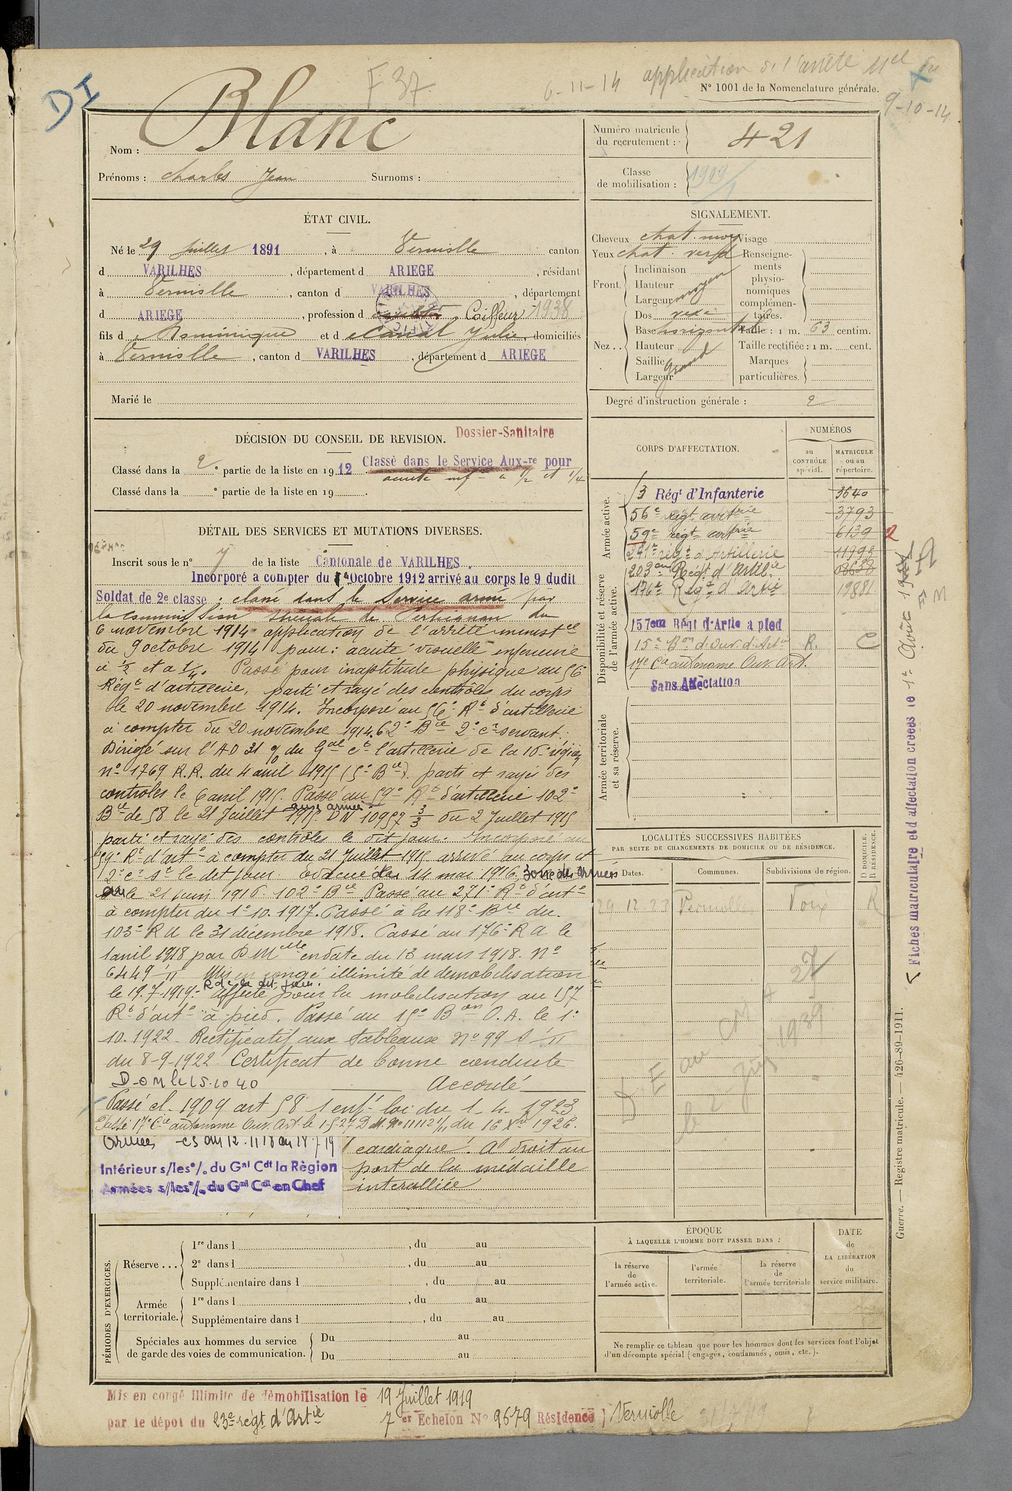 DI
F 37
6-11-14 application de l'arrêté Mel du
9-10-14
N° 1001 de la Nomenclature générale.
Nom : Blanc
Prénoms : Charles Jean Surnoms :
Numéro matricule du recrutement : 421
Classe de mobilisation : 1909/1
ÉTAT CIVIL.
Né le 29 juillet 1891, à Verniolle canton
d VARILHES, département d ARIEGE, résidant
à Verniolle, canton d VARILHES, département
d ARIEGE, profession d Coiffeur 1938
fils d Dominique et d Canat Julie, domiciliés
à Verniolle, canton d VARILHES, département d ARIEGE
Marié le
SIGNALEMENT.
Cheveux chat moy Visage
Yeux chat. verd Renseignements physionomiques complémentaires.
Front. Inclinaison
Hauteur moyen
Largeur
Nez.. Dos vexe
Base horizontale Taille : 1 m. 63 centim.
Hauteur Taille rectifiée : 1 m. cent.
Saillie grand Marques
Largeur particulières.
Degré d'instruction générale : 2
DÉCISION DU CONSEIL DE REVISION. Dossier-Sanitaire
Classé dans la 2e partie de la liste en 1912 Classé dans le Service Aux-re pour
acuité inf re à 1/2 et 1/4
Classé dans la e partie de la liste en 19 .
CORPS D'AFFECTATION.
NUMÉROS
au CONTRÔLE spécial.
MATRICULE ou au répertoire.
Armée active.
Disponibilité et réserve de l'armée active.
Armée territoriale et sa réserve.
/3 Régt d'Infanterie 3640
56e régt artrie 3793
59e régt artrie 6139 2
271e régt d'Artillerie 11792
203e Régt d'Artil.ie
176e Régt d'Artie 19881
157em Régt d'Artie à pied
15e Bon d'Ouv. d'Artie R. C
17e Cie autonome Ouv. Art.
Sans Affectation
DÉTAIL DES SERVICES ET MUTATIONS DIVERSES.
Inscrit sous le n° 7 de la liste Cantonale de VARILHES.
Incorporé a compter du 1er Octobre 1912 arrivé au corps le 9 dudit
Soldat de 2e classe ; classé dans le Service armé par
la Commission Spéciale de Perpignan du
6 novembre 1914 application de l'arrêté minist el
du 9 octobre 1914 pour : acuité visuelle inférieure
à 1/2 et à 1/4. Passé pour inaptitude physique au 56e
Régt d'artillerie, parti et rayé des contrôles du corps
le 20 novembre 1914. Incorporé au 56e Rt d'artillerie
à compter du 20 novembre 1914 62e Bie 2e cr servant.
Dirigé sur l'AD 31 du Gal Ct l'artillerie de la 16e région
n° 1769 R.R. du 4 avril 1915 (5e Bie) parti et rayé des
contrôles le 6 avril 1915. Passé au 59e Rt d'artillerie 102e
Bie de 58 le 21 Juillet 1915 aux armées DM 10952 3/3 du 2 Juillet 1915
parti et rayé des contrôles le dit jour. Incorporé au
59e Rt d'artie à compter du 21 Juillet 1915 arrivé au corps et
2e cr St le dit jour. évacué le 14 mai 1916. Zone des armées
le 21 juin 1916. 102e Bie. Passé au 271e Rt d'artie
à compter du 1er 10.1917. Passé à la 118e Bie du
103e R A le 31 décembre 1918. Passé au 176e R A le
1 avril 1918 par D Melle en date du 13 mars 1918. N°
6449/11 Mis en congé illimité de démobilisation
le 19.7.1919. R de la dit jour. Affecté pour la mobilisation au 157
Rt d'artie à pied. Passé au 15e Bon O.A. le 1er
10.1922. Rectificatif aux tableaux n° 99
du 8-9-1922 Certificat de bonne conduite
D.O.M le 15.10.40 Accordé
Passé cl. 1909 art 58 1 enft loi du 1-4-1923
Passé 17e Cie autonome Ouv. Art le
du 16 Xbre 1926.
Armées du 12.11.18 au 18/7/19
Intérieur s/les°/. du Gal Cdt la Région
Armées s/les°/. du Gal Cdt en Chef
cardiaque. A droit au
port de la médaille
interalliée
LOCALITÉS SUCCESSIVES HABITÉES
PAR SUITE DE CHANGEMENTS DE DOMICILE OU DE RÉSIDENCE.
Dates. Communes. Subdivisions de région. D DOMICILE. R RÉSIDENCE.
29.12.23 Verniolle Foix R
D E au CM 427
le 2 Juin 1939
Fiches matriculaire et d'affectation créées le 1er Août
Guerre. — Registre matricule. — 426-89-1911.
ÉPOQUE
À LAQUELLE L'HOMME DOIT PASSER DANS :
la réserve de l'armée active.
l'armée territoriale.
la réserve de l'armée territoriale
DATE de LA LIBÉRATION du service militaire.
Ne remplir ce tableau que pour les hommes dont les services font l'objet
d'un décompte spécial (engagés, condamnés, omis, etc.).
PÉRIODES D'EXERCICES.
Réserve...
1re dans l , du au
2e dans l , du au
Supplémentaire dans l , du au
Armée territoriale.
1re dans l , du au
Supplémentaire dans l , du au
Spéciales aux hommes du service de garde des voies de communication.
Du au
Du au
Mis en congé illimité de démobilisation le 19 Juillet 1919
par le dépôt du 23e régt d'Artie 7er Echelon N° 9679 Résidence Verniolle